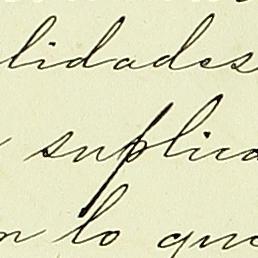 lidades
suplica
n lo que